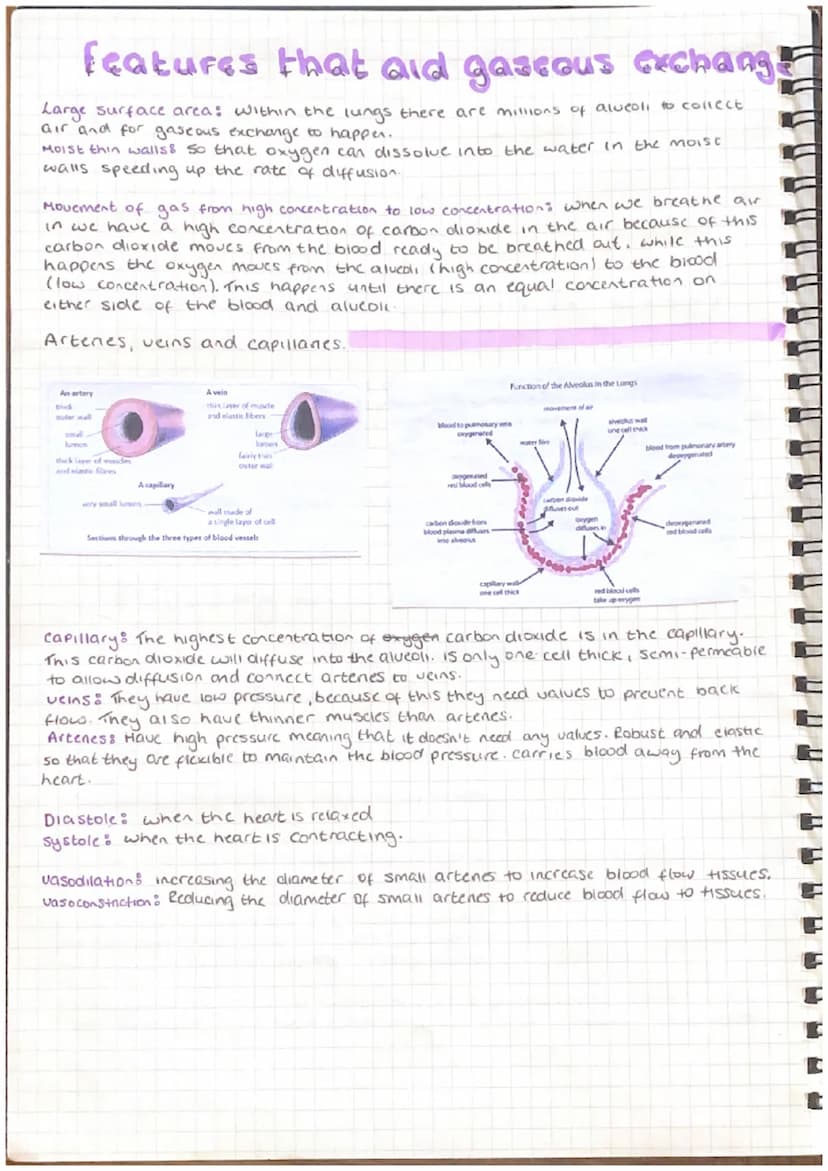 features that aid gaseous exchange
Large surface area: within the lungs there are millions of alveoli to collect
air and for gaseous exchange to happen.
Moist thin walls: so that oxygen can dissolve into the water in the moist
walls speeding up the rate of diffusion.
Movement of gas from high concentration to low concentration: when we breathe air
in we have a high concentration of carbon dioxide in the air because of this
carbon dioxide moves from the blood ready to be breathed out. while this
happens the oxygen moves from the alveoli (high concentration) to the blood
(low concentration). This happens until there is an equal concentration on
either side of the blood and alveoli.
Arteries, veins and capillaries.
An artery
thick
outer wall
small
lumen
thick layer of muscles
and elastic fibres
A vein
thin layer of muscle
and elastic fibers
large
lumen
fairly thin
outer wall
A capillary
very small lumen
wall made of
a single layer of cell
Sections through the three types of blood vessels
Function of the Alveolus in the Lungs
movement of air
blood to pulmonary vein
oxygenated
water film
alveolus wall
one cell thick
blood from pulmonary artery
deoxygenated
oxygenated
red blood cells
carbon dioxide
diffuses out
oxygen
diffuses in
carbon dioxide from
blood plasma diffuses
into alveolus
deoxygenated
red blood cells
capillary wall
one cell thick
red blood cells
take up oxygen
Capillary: The highest concentration of oxygen carbon dioxide is in the capillary.
This carbon dioxide will diffuse into the alveoli. is only one cell thick, semi-permeable
to allow diffusion and connect arteries to veins.
Veins: They have low pressure, because of this they need valves to prevent back
flow. They also have thinner muscles than arteries.
Arteries: Have high pressure meaning that it doesn't need any valves. Robust and elastic
so that they are flexible to maintain the blood pressure. carries blood away from the
heart.
Diastole: when the heart is relaxed
Systole: when the heart is contracting.
Vasodilation: increasing the diameter of small arteries to increase blood flow tissues.
Vasoconstriction: Reducing the diameter of small arteries to reduce blood flow to tissues.